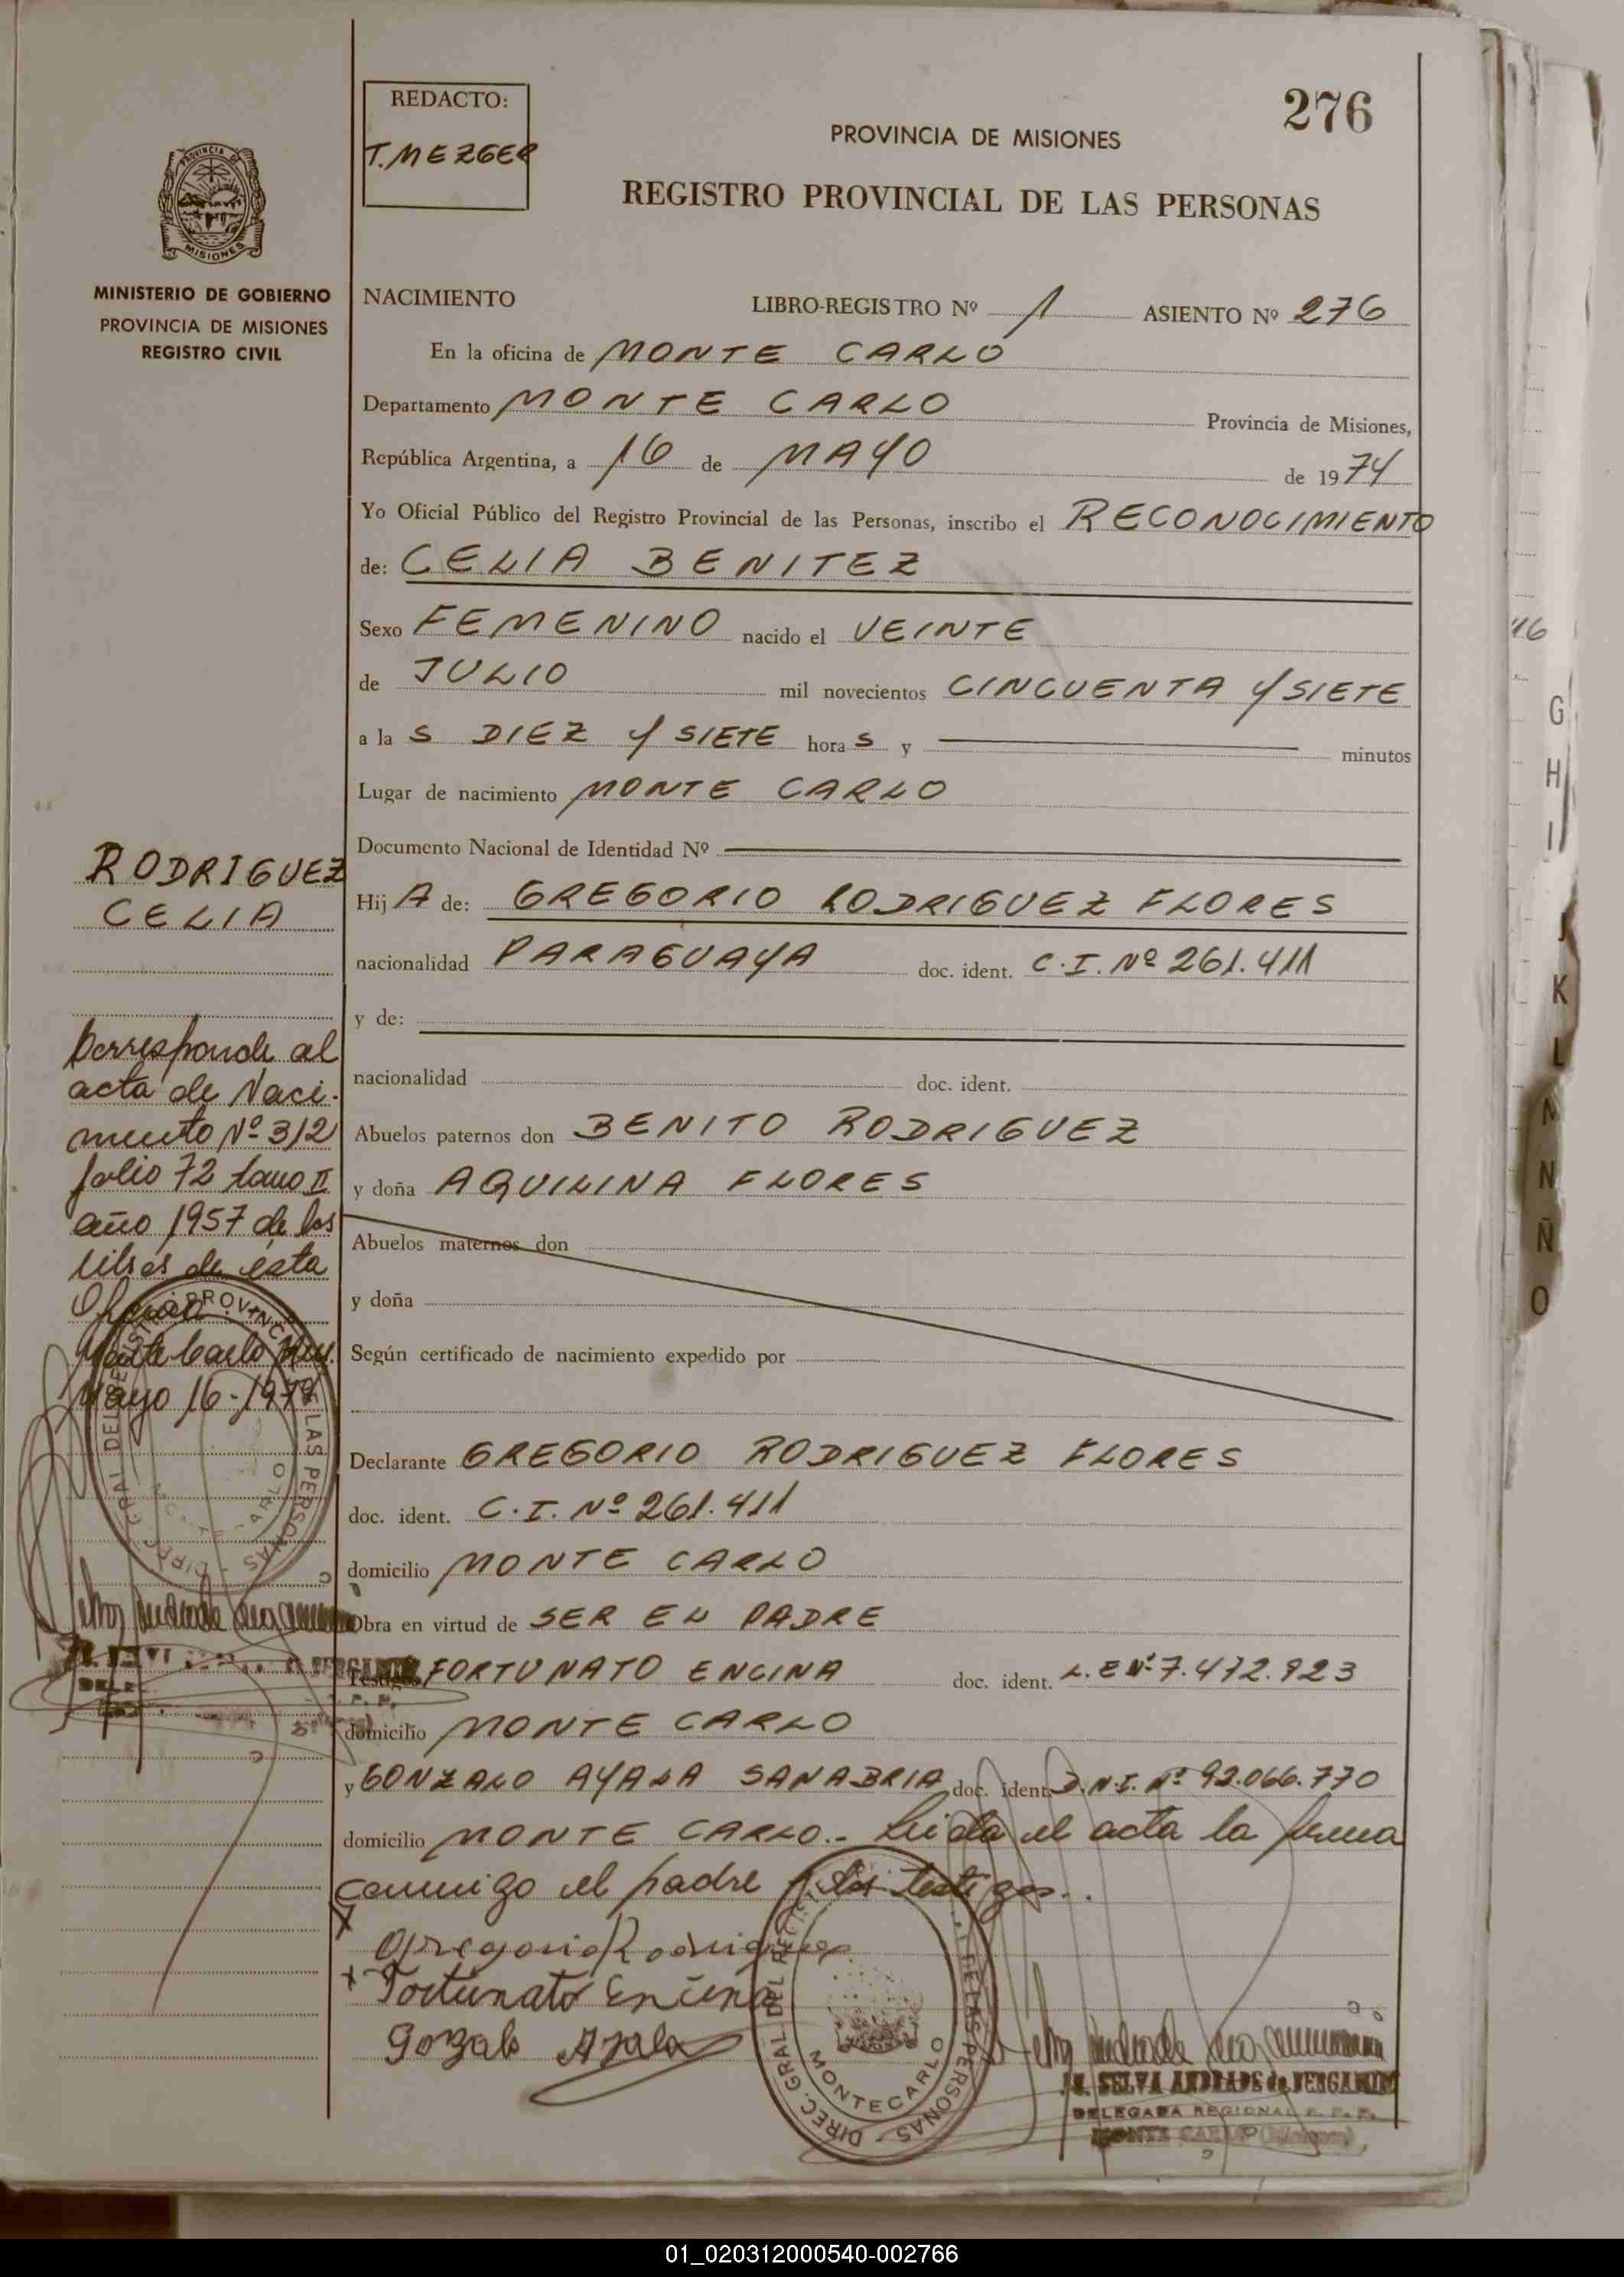 276
REDACTO:
T. MEZGER
PROVINCIA DE MISIONES
REGISTRO PROVINCIAL DE LAS PERSONAS
PROVINCIA DE
MISIONES
MINISTERIO DE GOBIERNO
PROVINCIA DE MISIONES
REGISTRO CIVIL
NACIMIENTO LIBRO-REGISTRO Nº 1 ASIENTO Nº 276
En la oficina de MONTE CARLO
Departamento MONTE CARLO Provincia de Misiones,
República Argentina, a 16 de MAYO de 1974
Yo Oficial Público del Registro Provincial de las Personas, inscribo el RECONOCIMIENTO
de: CELIA BENITEZ
Sexo FEMENINO nacido el VEINTE
de JULIO mil novecientos CINCUENTA Y SIETE
a la S DIEZ Y SIETE hora S y minutos
Lugar de nacimiento MONTE CARLO
Documento Nacional de Identidad Nº
Hij A de: GREGORIO RODRIGUEZ FLORES
nacionalidad PARAGUAYA doc. ident. C.I. Nº 261.411
y de:
nacionalidad doc. ident.
Abuelos paternos don BENITO RODRIGUEZ
y doña AQUILINA FLORES
Abuelos maternos don
y doña
Según certificado de nacimiento expedido por
Declarante GREGORIO RODRIGUEZ FLORES
doc. ident. C.I. Nº 261.411
domicilio MONTE CARLO
Obra en virtud de SER EL PADRE
Testigos FORTUNATO ENCINA doc. ident. L.E Nº 7.472.923
domicilio MONTE CARLO
y GONZALO AYALA SANABRIA doc. ident. D.N.I. Nº 92.066.770
domicilio MONTE CARLO.- Leida el acta la firma
conmigo el padre y los testigos..
Gregorio Rodriguez
Fortunato Encina
Gozalo Ayala
DIREC. GRAL. DEL REGISTRO DE LAS PERSONAS
MONTECARLO
SELVA ANDRADE de BERGAMINI
DELEGADA REGIONAL R. P. P.
MONTE CARLO (Misiones)
RODRIGUEZ
CELIA
Corresponde al
acta de Naci-
miento Nº 312
folio 72 tomo II
año 1957 de los
libros de ésta
Oficina.
Monte Carlo Mis.
Mayo 16-1974
DIREC. GRAL. DEL REGISTRO PROVINCIAL DE LAS PERSONAS
16
G
H
I
J
K
L
M
N
Ñ
O
01_020312000540-002766